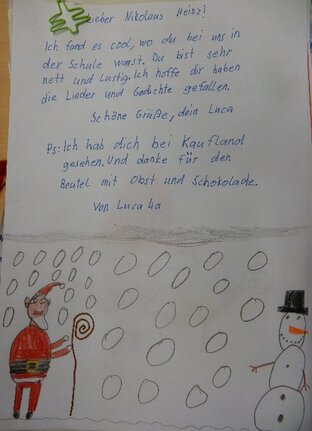 Lieber Nikolaus Heinz!
Ich fand es cool, wo du bei uns in
der Schule warst. Du bist sehr
nett und Lustig. Ich hoffe dir haben
die Lieder und Gedichte gefallen.
Schöne Grüße, dein Luca
Ps: Ich hab dich bei Kaufland
gesehen. Und danke für den
Beutel mit Obst und Schokolade.
Von Luca 4a